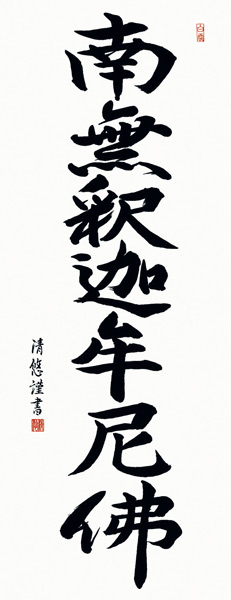 南無釈迦牟尼佛
清悠謹書